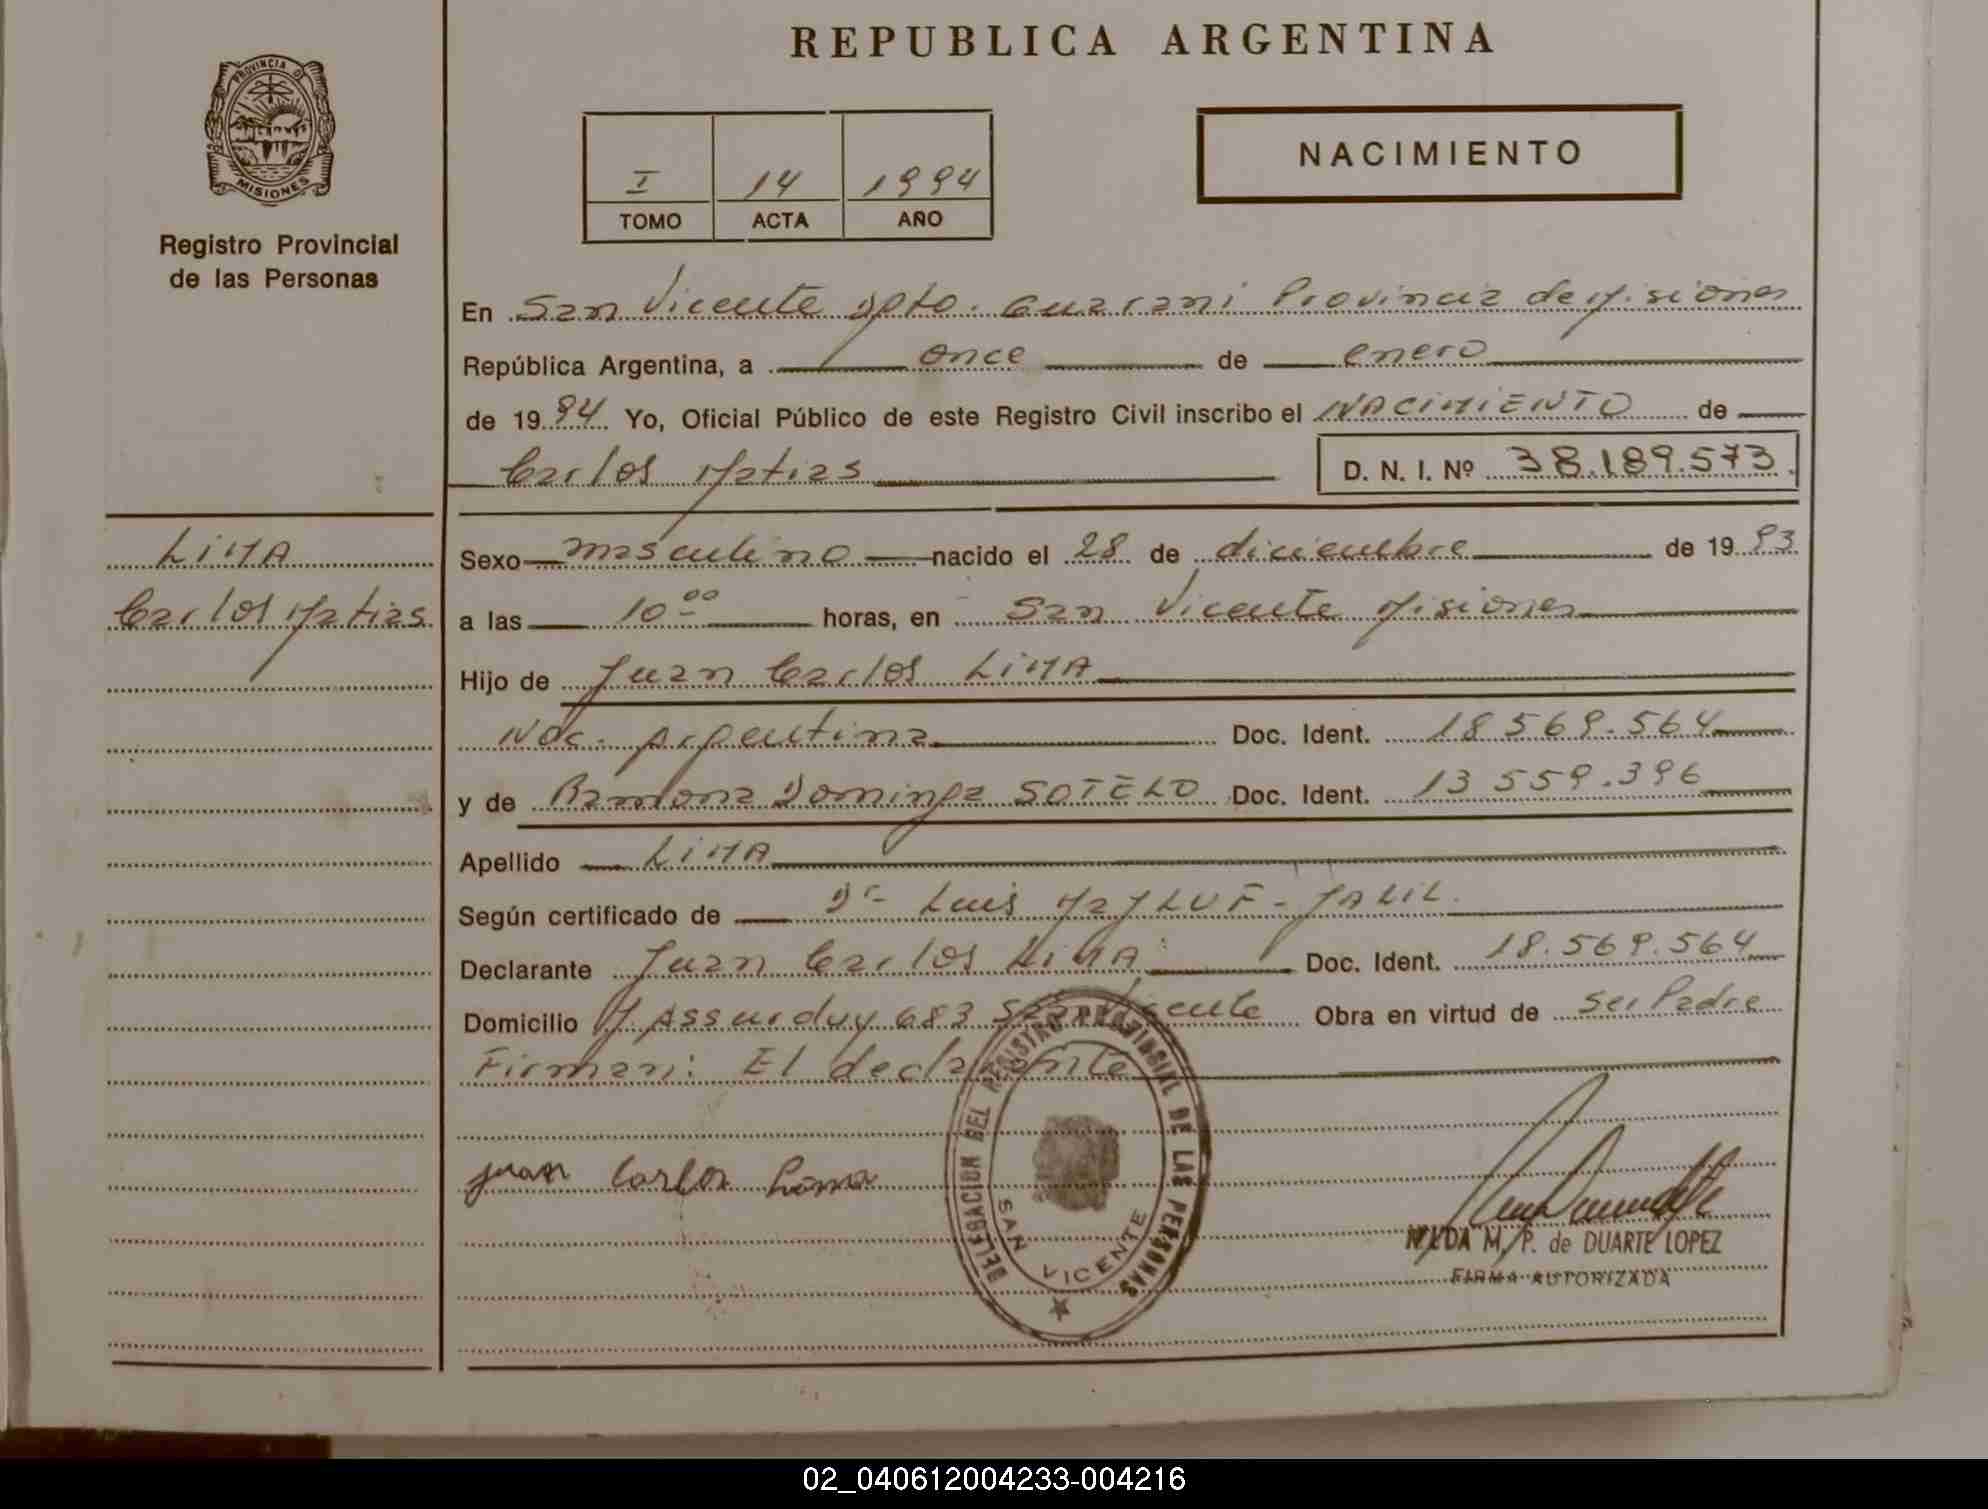 REPUBLICA ARGENTINA
PROVINCIA D
MISIONES
Registro Provincial
de las Personas
I 14 1994
TOMO ACTA AÑO
NACIMIENTO
En San Vicente Dpto. Guarani Provincia de Misiones
República Argentina, a once de enero
de 1994 Yo, Oficial Público de este Registro Civil inscribo el NACIMIENTO de
Carlos Matias D. N. I. Nº 38.189.573
LIMA
Carlos Matias
Sexo masculino nacido el 28 de diciembre de 1993
a las 10 00 horas, en San Vicente Misiones
Hijo de Juan Carlos LIMA
Nac. Argentina Doc. Ident. 18 569.564
y de Ramona Dominga SOTELO Doc. Ident. 13 559.396
Apellido LIMA
Según certificado de Dr Luis JALIL.
Declarante Juan Carlos LIMA Doc. Ident. 18.569.564
Domicilio J. Assurduy 683 San Vicente Obra en virtud de ser Padre
Firman: El declarante
Juan Carlos Lima
DELEGACION DEL REGISTRO PROVINCIAL DE LAS PERSONAS
SAN VICENTE
NILDA M. P. de DUARTE LOPEZ
FIRMA AUTORIZADA
02_040612004233-004216